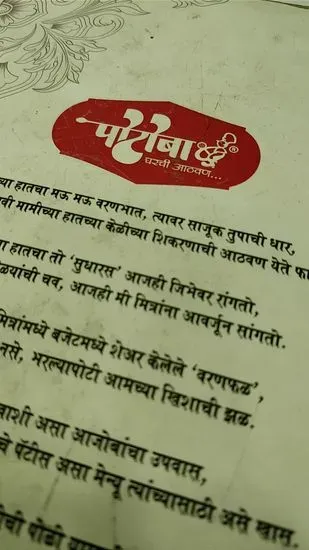 पोटोबा
®
घरची आठवण...
च्या हातचा मऊ मऊ वरणभात, त्यावर साजूक तुपाची धार,
मामीच्या हातच्या केळीच्या शिकरणाची आठवण येते
हातचा तो 'सुधारस' आजही जिभेवर रांगतो,
चव, आजही मी मित्रांना आवर्जून सांगतो.
मित्रांमध्ये बजेटमध्ये शेअर केलेले 'वरणफळ'
नसे, भरल्यापोटी आमच्या खिशाची झळ.
असा आजोबांचा उपवास,
पॅटीस असा मेन्यू त्यांच्यासाठी असे खास.
पोळी